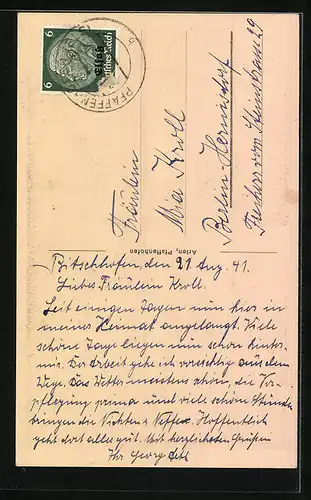 6 6
Elsaß
Deutsches Reich
PFAFFEN
Fräulein
Mia Kroll
Berlin-Hermsdorf
Freiherr vom Steinstrasse 29
Arlen, Pfaffenhofen
Bitschhofen, den 21 Aug. 41.
Liebes Fräulein Kroll.
Seit einigen Tagen nun hier in
meiner Heimat angelangt. Viele
schöne Tage liegen nun schon hinter
mir. Der Arbeit gehe ich vorsichtig aus dem
Wege. Das Wetter meistens schön, die Ver-
pflegung prima und viele schöne Stunden
bringen die Nichten & Neffen. Hoffentlich
geht dort alles gut. Mit herzlichsten Grüßen
Ihr Georg